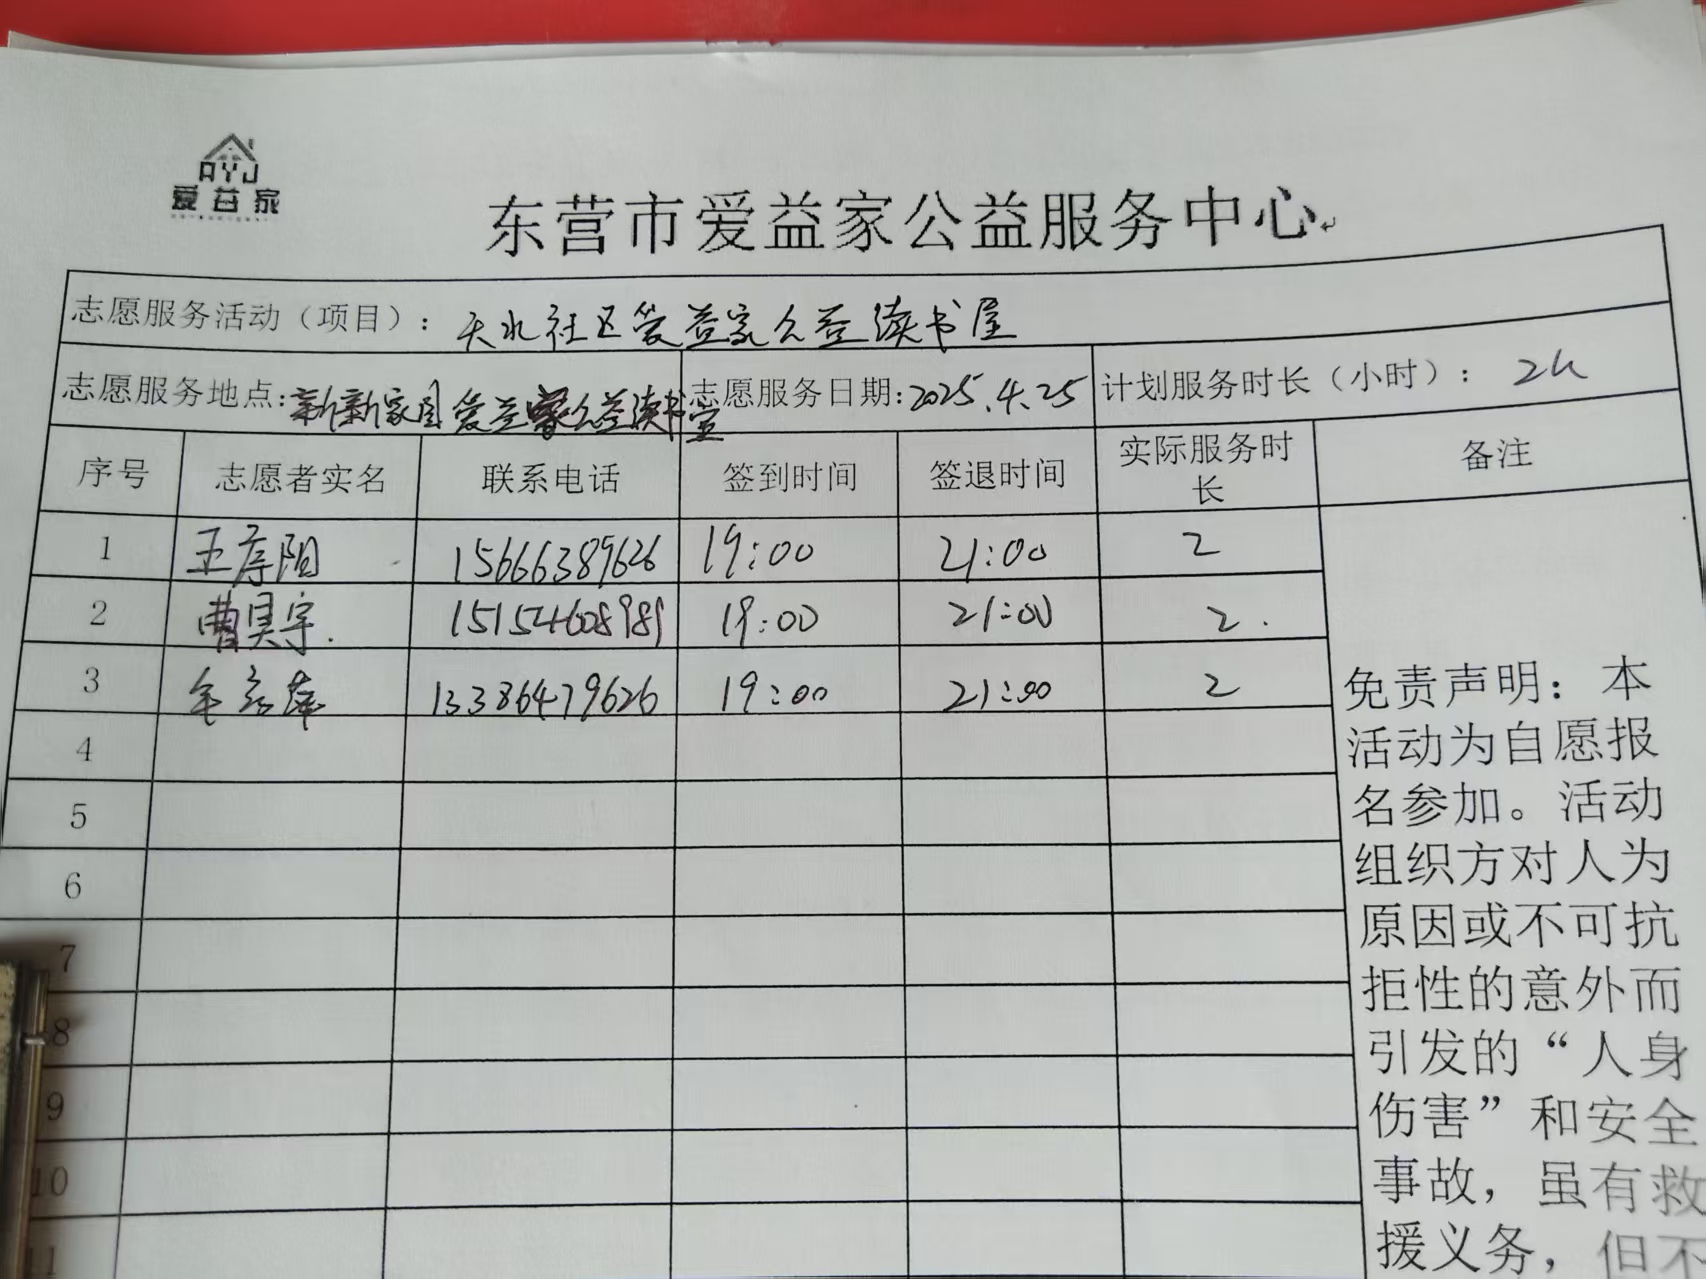 AYJ
爱益家
东营市爱益家公益服务中心
志愿服务活动（项目）：天水社区爱益家公益读书屋
志愿服务地点：新新家园爱益家公益读书室 志愿服务日期：2025.4.25 计划服务时长（小时）：2h
序号 志愿者实名 联系电话 签到时间 签退时间 实际服务时长 备注
1 王序阳 15666389626 19:00 21:00 2
2 曹昊宇. 15154608989 19:00 21:00 2.
3 13386479626 19:00 21:00 2
4
5
6
7
8
9
10
11
免责声明：本
活动为自愿报
名参加。活动
组织方对人为
原因或不可抗
拒性的意外而
引发的“人身
伤害”和安全
事故，虽有救
援义务，但不